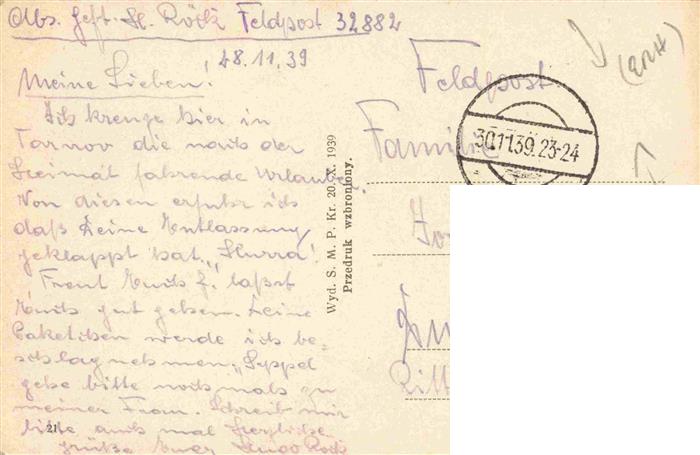 Abs. Gefr. H. Röck Feldpost 32882
28.11.39
Meine Lieben!
Ich kreuze hier in
Tarnow die nach der
Heimat fahrende Urlauber.
Von diesen erfuhr ich
daß Deine Entlassung
geklappt hat. „Hurra“!
Freut Euch &. laßt
Euch gut gehen. Deine
Paketchen werde ich be=
schlagnehmen. „Seppel
gebe bitte nochmals zu
meiner Frau. Schreib mir
bitte auch mal Herzliche
Grüße Euer Röck
21
Wyd. S. M. P. Kr. 20. X. 1939
Przedruk wzbroniony.
Feldpost
30.11.39.23-24
Familie